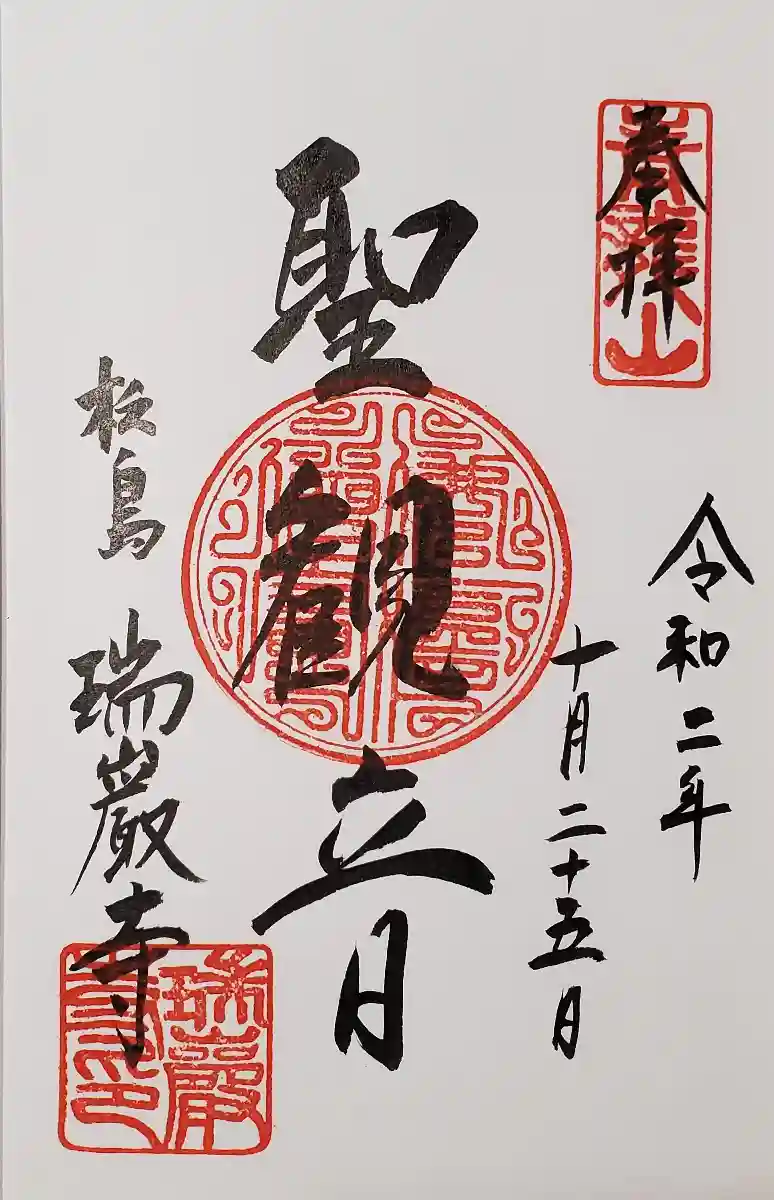 奉拝
令和二年
十月二十五日
聖観音
松島 瑞巌寺
瑞巌寺印